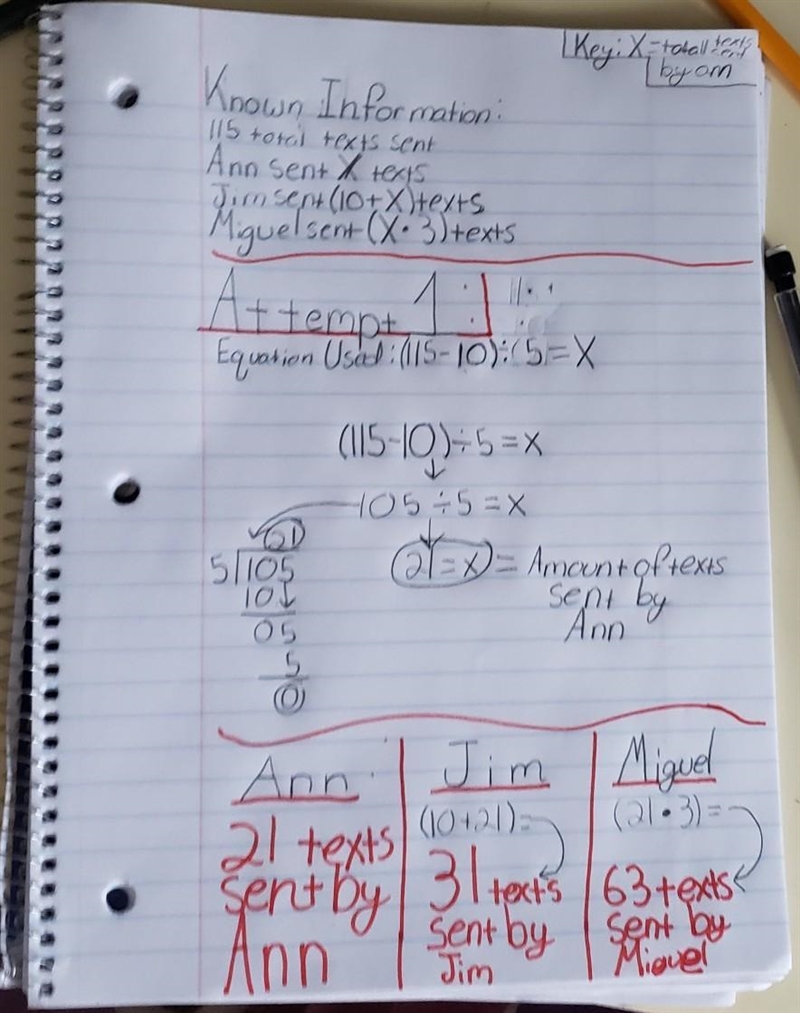 Key: X = total texts sent
by ann
Known Information:
115 total texts sent
Ann sent X texts
Jim sent (10+X) texts
Miguel sent (X•3) texts
Attempt 1:
Equation Used: (115-10)÷(5)=X
(115-10)÷5=X
↓
105÷5=X
↓
21
5)105
10↓
05
5
0
21=X = Amount of texts
sent by
Ann
Ann Jim Miguel
(10+21)= (21•3)=
21 texts
sent by
Ann
31 texts
sent by
Jim
63 texts
sent by
Miguel